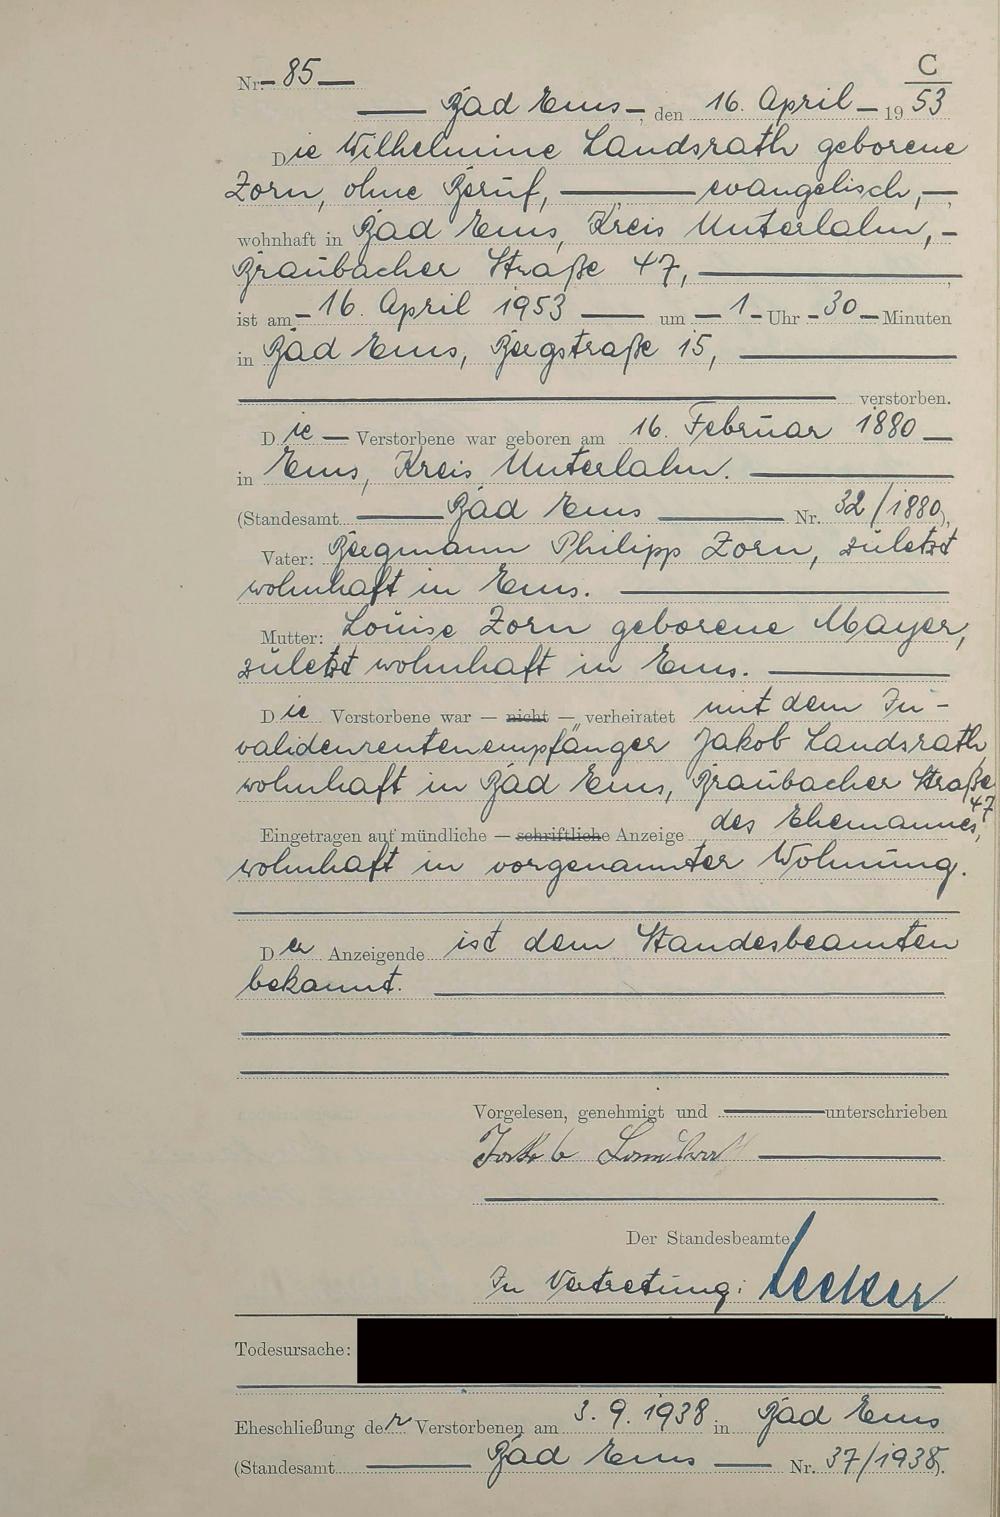 Nr. 85
C
Bad Ems, den 16. April 19 53
Die Wilhelmine Landsrath geborene
Zorn, ohne Beruf, evangelisch,
wohnhaft in Bad Ems, Kreis Unterlahn,
Braubacher Straße 47,
ist am 16. April 1953 um 1 Uhr 30 Minuten
in Bad Ems, Bergstraße 15,
verstorben.
Die Verstorbene war geboren am 16. Februar 1880
in Ems, Kreis Unterlahn.
(Standesamt Bad Ems Nr. 32/1880).
Vater: Bergmann Philipp Zorn, zuletzt
wohnhaft in Ems.
Mutter: Louise Zorn geborene Mayer,
zuletzt wohnhaft in Ems.
Die Verstorbene war — nicht — verheiratet mit dem In-
validenrentenempfänger Jakob Landsrath
wohnhaft in Bad Ems, Braubacher Straße
47
Eingetragen auf mündliche — schriftliche Anzeige des Ehemannes,
wohnhaft in vorgenannter Wohnung.
Der Anzeigende ist dem Standesbeamten
bekannt.
Vorgelesen, genehmigt und unterschrieben
Jakob
Der Standesbeamte
In Vertretung:
Todesursache:
Eheschließung der Verstorbenen am 3. 9. 1938 in Bad Ems
(Standesamt Bad Ems Nr. 37/1938).